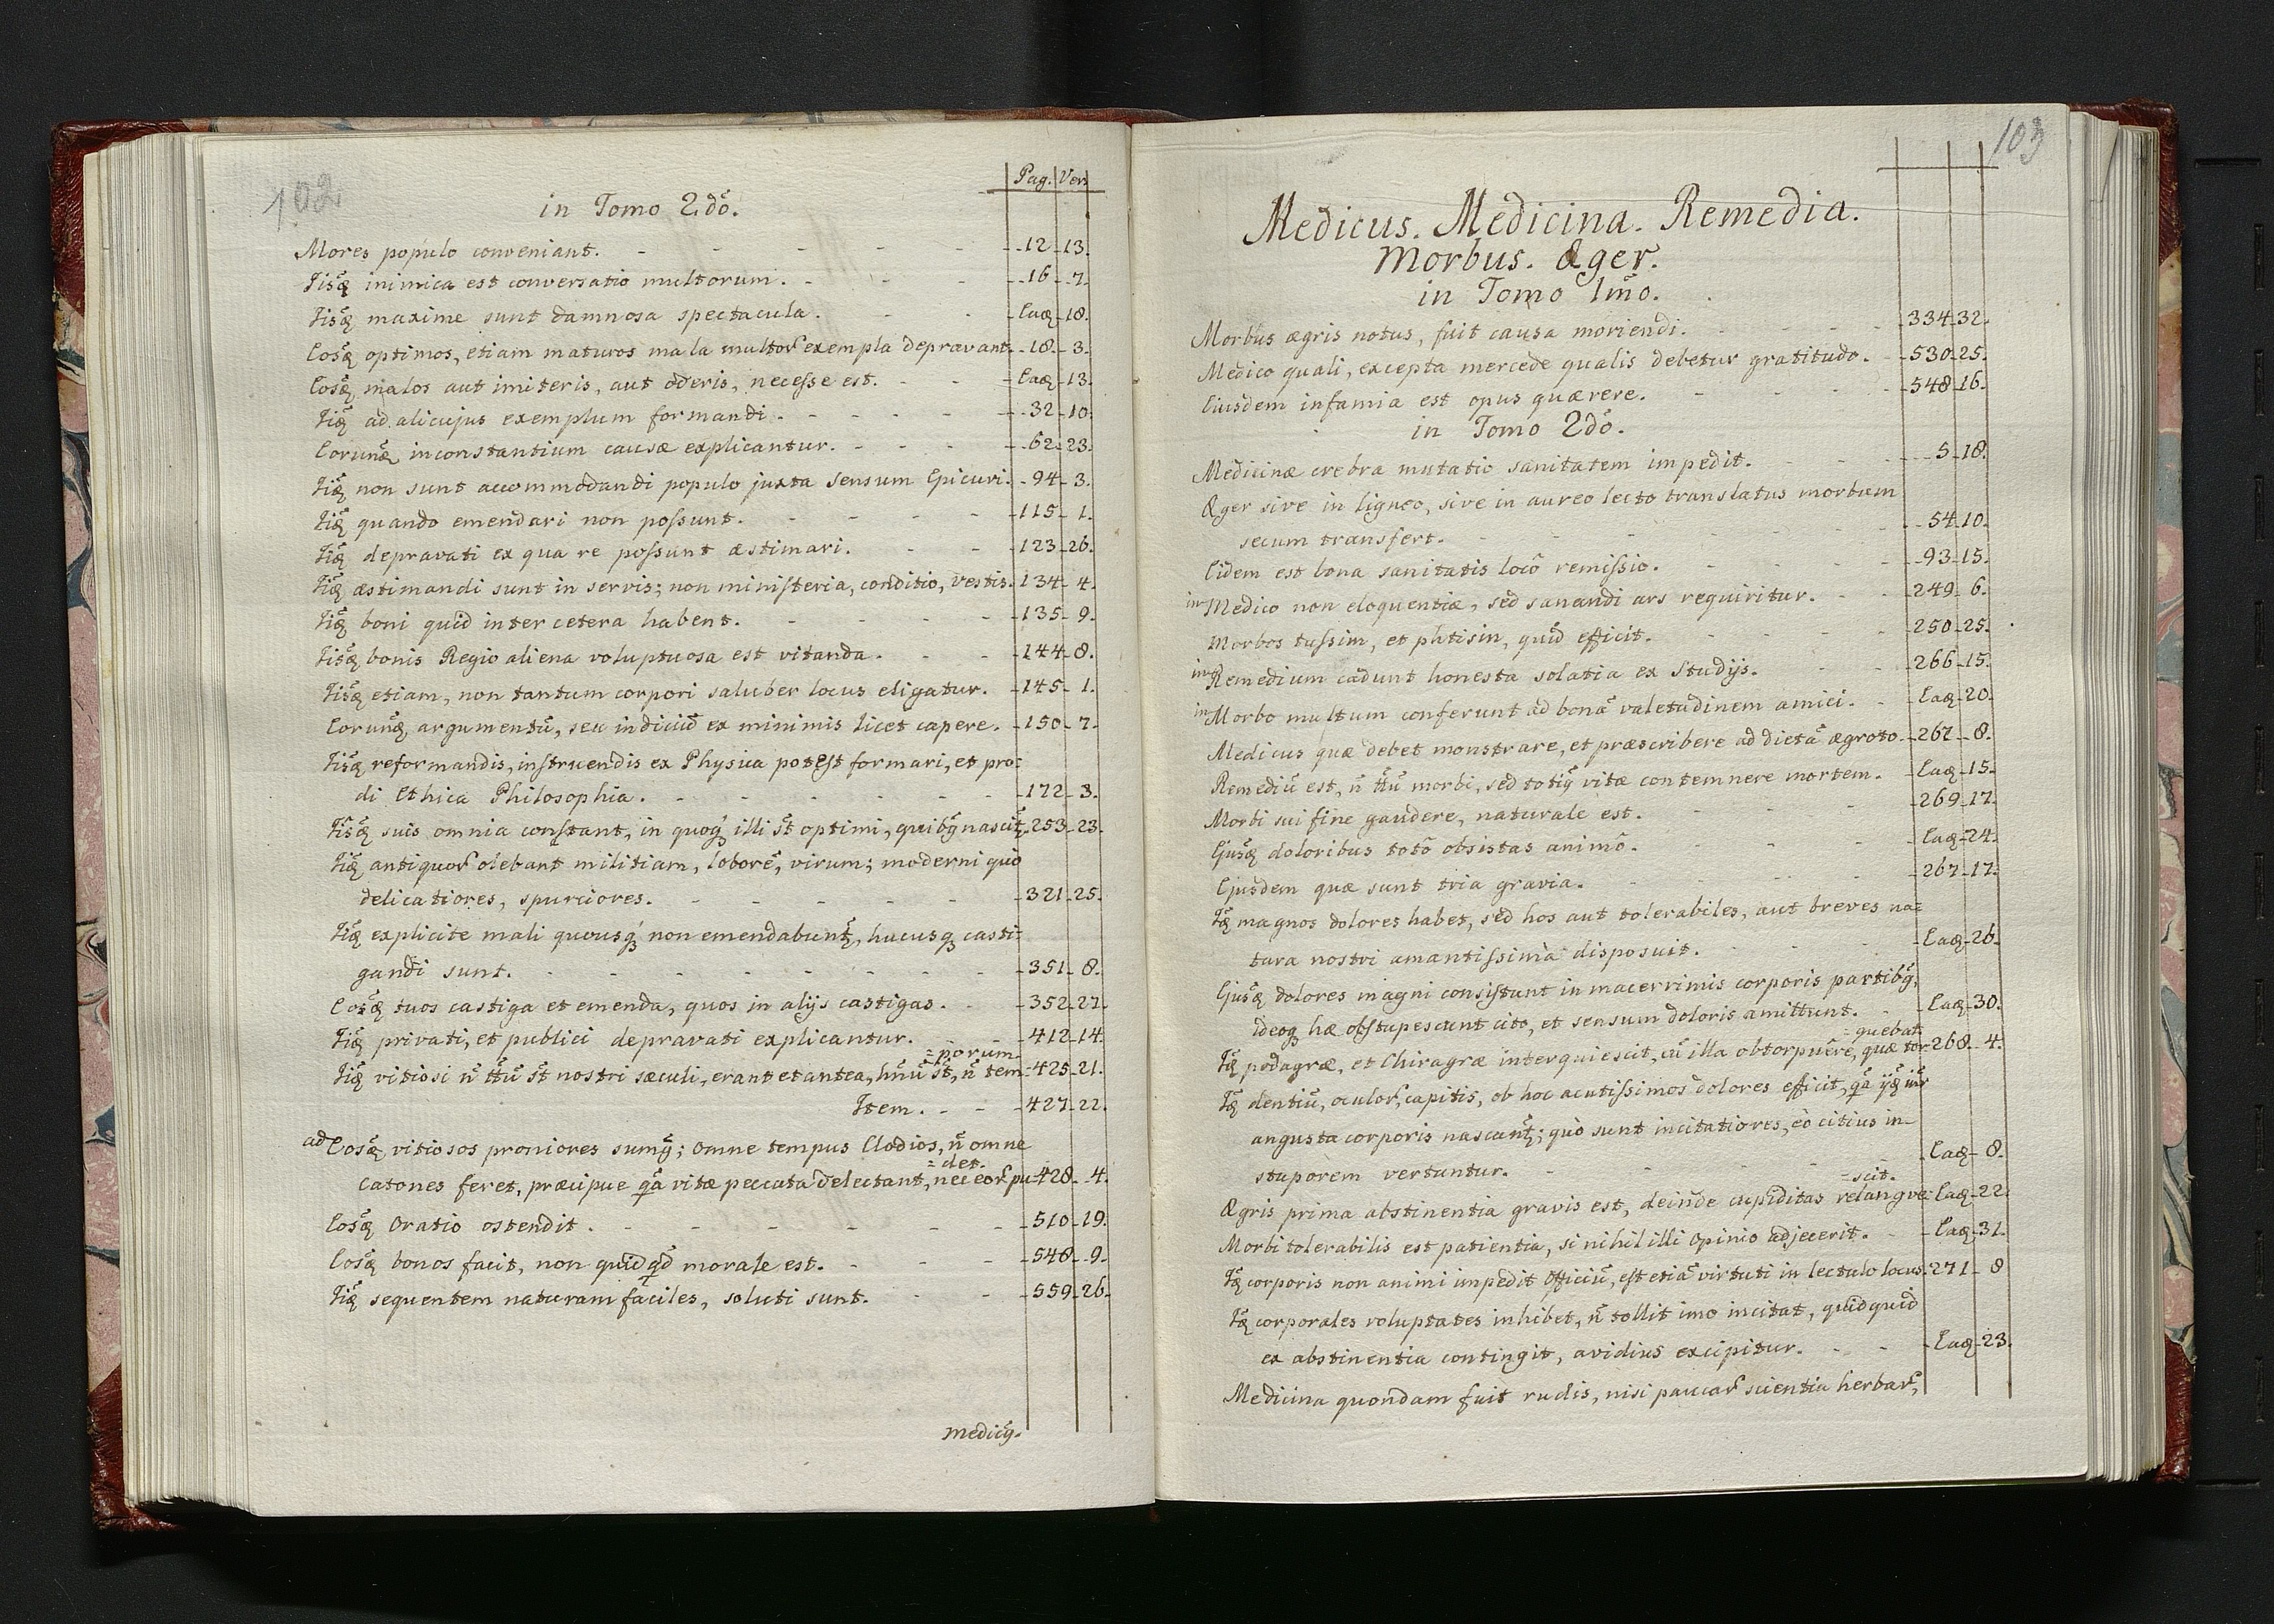 102
Pag. Ver.
in Tomo 2dō.
Mores populo conveniant. - - - - - 12 - 13.
Iisq̃ inimica est conversatio multorum. - - - 16 - 7.
Iisq̃ maxime sunt damnosa spectacula. - - Eaq̃ - 18.
Eosq̃ optimos, etiam maturos mala multor̃ exempla depravant. - 18 - 3.
Eosq̃ malos aut imiteris, aut oderis, necesse est. - - Eaq̃ - 13.
Iiq̃ ad alicujus exemplum formandi. - - - - 32 - 10.
Eorunq̃ inconstantium causæ explicantur. - - - - 62 - 23.
Iiq̃ non sunt accommodandi populo juxta sensum Epicuri. - 94 - 3.
Iiq̃ quando emendari non possunt. - - - - 115 - 1.
Iiq̃ depravati ex qua re possunt æstimari. - - 123 - 26.
Iiq̃ æstimandi sunt in servis; non ministeria, conditio, vestis. 134 - 4.
Iiq̃ boni quid inter cetera habent. - - - - 135 - 9.
Iisq̃ bonis Regio aliena voluptuosa est vitanda. - - 144 - 8.
Iisq̃ etiam, non tantum corpori saluber locus eligatur. - 145 - 1.
Eorunq̃ argumentū, seu indiciū ex minimis licet capere. - 150 - 7.
Iisq̃ reformandis, instruendis ex Physica potest formari, et pro=
di Ethica Philosophia. - - - - - - 172 - 3.
Iisq̃ suis omnia constant, in quoq̃ illi st̃ optimi, quibq̃ nascit̃. 253 - 23.
Iiq̃ antiquor̃ olebant militiam, loborē, virum; moderni quò
delicatiores, spurciores. - - - - - 321 - 25.
Iiq̃ explicite mali quousq́ non emendabunt̃, hucusq̃ casti=
gandi sunt. - - - - - - - - 351 - 8.
Eosq̃ tuos castiga et emenda, quos in alijs castigas. - - 352 - 27.
Iiq̃ privati, et publici depravati explicantur. - - 412 - 14.
=porum
Iiq̃ vitiosi ñ tt̃ū st̃ nostri sæculi, erant et antea, hñū st̃, ñ tem= 425 - 21.
Item. - - - 427 - 22.
ad Eosq̃ vitiosos proniores sumq̃; omne tempus Clodios, ñ omne
=det.
Catones feret, præcipue qã vitæ peccata delectant, nec eor̃ pu= 428 - 4.
Eosq̃ Oratio ostendit. - - - - - - 510 - 19.
Eosq̃ bonos facit, non quidqd̃ morale est. - - - 548 - 9.
Iiq̃ sequentem naturam faciles, soluti sunt. - - 559 - 26.
mediciq̃.
103
Medicus. Medicina. Remedia.
Morbus. Æger.
in Tomo 1mō.
Morbus ægris notus, fuit causa moriendi. - - - - 334 - 32.
Medico quali, excepta mercede qualis debetur gratitudo. - 530 - 25.
Eiusdem infamia est opus quærere. - - - 548 - 16.
in Tomo 2dō.
Medicinæ crebra mutatio sanitatem impedit. - - - 5 - 18.
Æger sive in ligneo, sive in aureo lecto translatus morbum
secum transfert. - - - - - 54 - 10.
Eidem est bona sanitatis locô remissio. - - - 93 - 15.
in Medico non eloquentiæ, sed sanandi ars requiritur. - - 249 - 6.
Morbos tussim, et phtisin, quid efficit. - - - 250 - 25.
in Remedium cadunt honesta solatia ex studijs. - - 266 - 15.
in Morbo multum conferunt ad bonā valetudinem amici. - Eaq̃ - 20.
Medicus quæ debet monstrare, et præscribere ad dietā ægroto. - 267 - 8.
Remediū est, ñ tt̃ū morbi, sed totiq̃ vitæ contemnere mortem. - Eaq̃ - 15.
Morbi sui fine gaudere, naturale est. - - - 269 - 17.
Ejusq̃ doloribus totô obsistas animô. - - - Eaq̃ - 24.
Ejusdem quæ sunt tria gravia. - - - 267 - 17.
Iq̃ magnos dolores habet, sed hos aut tolerabiles, aut breves na=
tura nostri amantissimà disposuit. - - - Eaq̃ - 26.
Ejusq̃ dolores magni consistunt in macerrimis corporis partibq̃,
ideoq̃ hæ obstupescunt cito, et sensum doloris amittunt. - Eaq̃ - 30.
=quebat.
Iq̃ podagræ, et Chiragræ interquiescit, cū illa obtorpuēre, quæ tor= 268 - 4.
Iq̃ dentiū, oculor̃, capitis, ob hoc acutissimos dolores efficit, qã ijq̃ int̃
angusta corporis nascunt̃; quò sunt incitatiores, eò citius in-
stuporem vertuntur. - - - - - Eaq̃ - 8.
=scit.
Ægris prima abstinentia gravis est, deinde cupiditas relangve= Eaq̃ - 22.
Morbi tolerabilis est patientia, si nihil illi Opinio adjecerit. - Eaq̃ - 31.
Iq̃ corporis non animi impedit Officiū, est etiā virtuti in lectulo locus. 271 - 8
Iq̃ corporales voluptates inhibet, ñ tollit imo incitat, quidquid
ex abstinentia contingit, avidius excipitur. - - Eaq̃ - 23.
Medicina quondam fuit rudis, nisi paucar̃ scientia herbar̃,